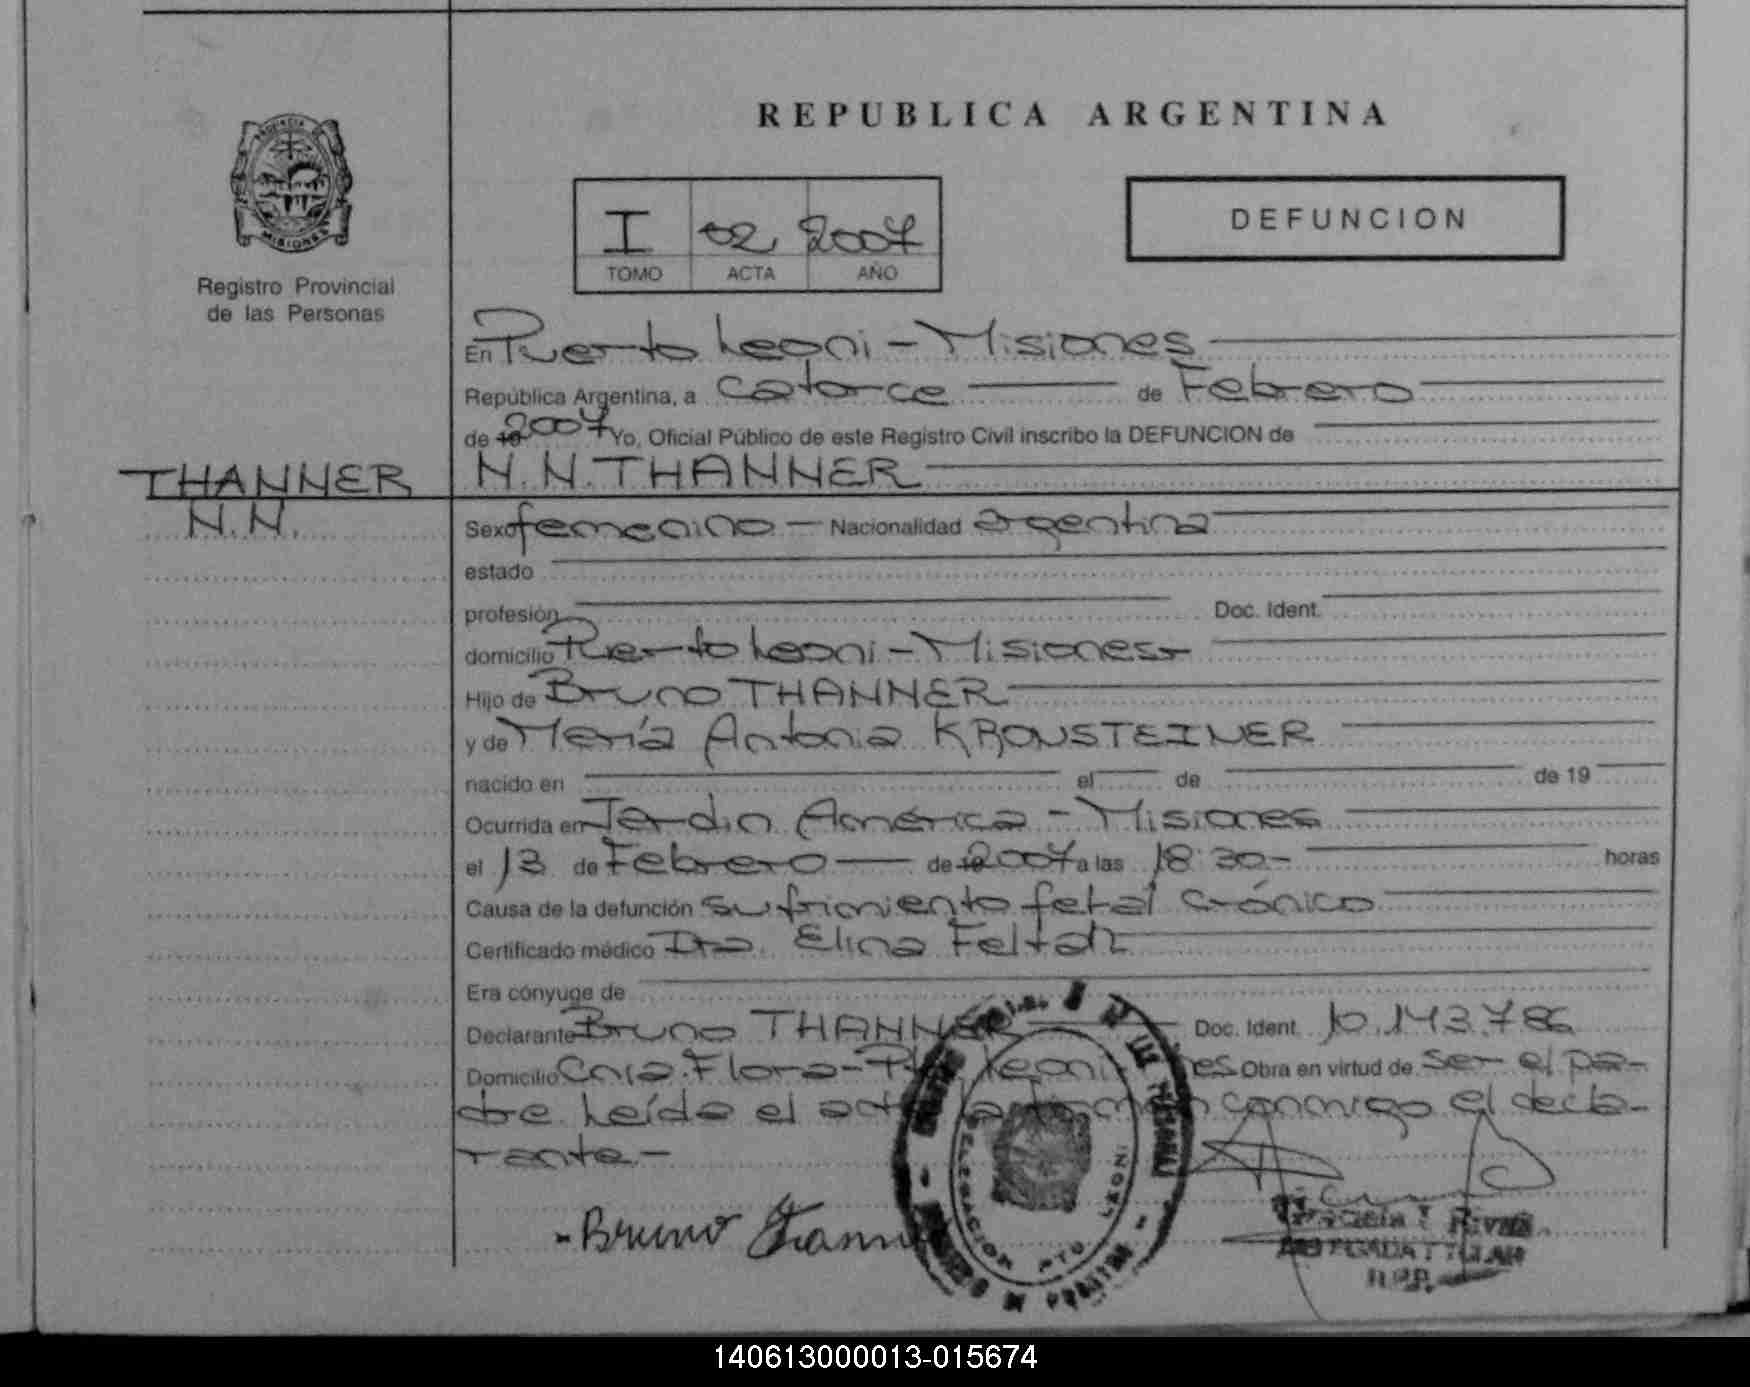 REPUBLICA ARGENTINA
PROVINCIA DE
MISIONES
Registro Provincial
de las Personas
I 02 2007
TOMO ACTA AÑO
DEFUNCION
En Puerto Leoni - Misiones
República Argentina, a catorce de Febrero
de 19 2007 Yo, Oficial Público de este Registro Civil inscribo la DEFUNCION de
THANNER
N.N.
N. N. THANNER
Sexo femenino - Nacionalidad argentina
estado
profesión Doc. Ident.
domicilio Puerto Leoni - Misiones
Hijo de Bruno THANNER
y de María Antonia KRONSTEINER
nacido en el de de 19
Ocurrida en Jardin América - Misiones
el 13 de Febrero de 19 2007 a las 18:30- horas
Causa de la defunción sufrimiento fetal crónico
Certificado médico Dra. Elina
Era cónyuge de
Declarante Bruno THANNER Doc. Ident. 10.143.786
Domicilio Flora - Leoni - Obra en virtud de ser el pa-
dre Leída el conmigo el decla-
rante -
- Bruno
DELEGACION PTO LEONI
Rivas
TITULAR
R.P.P.
140613000013-015674